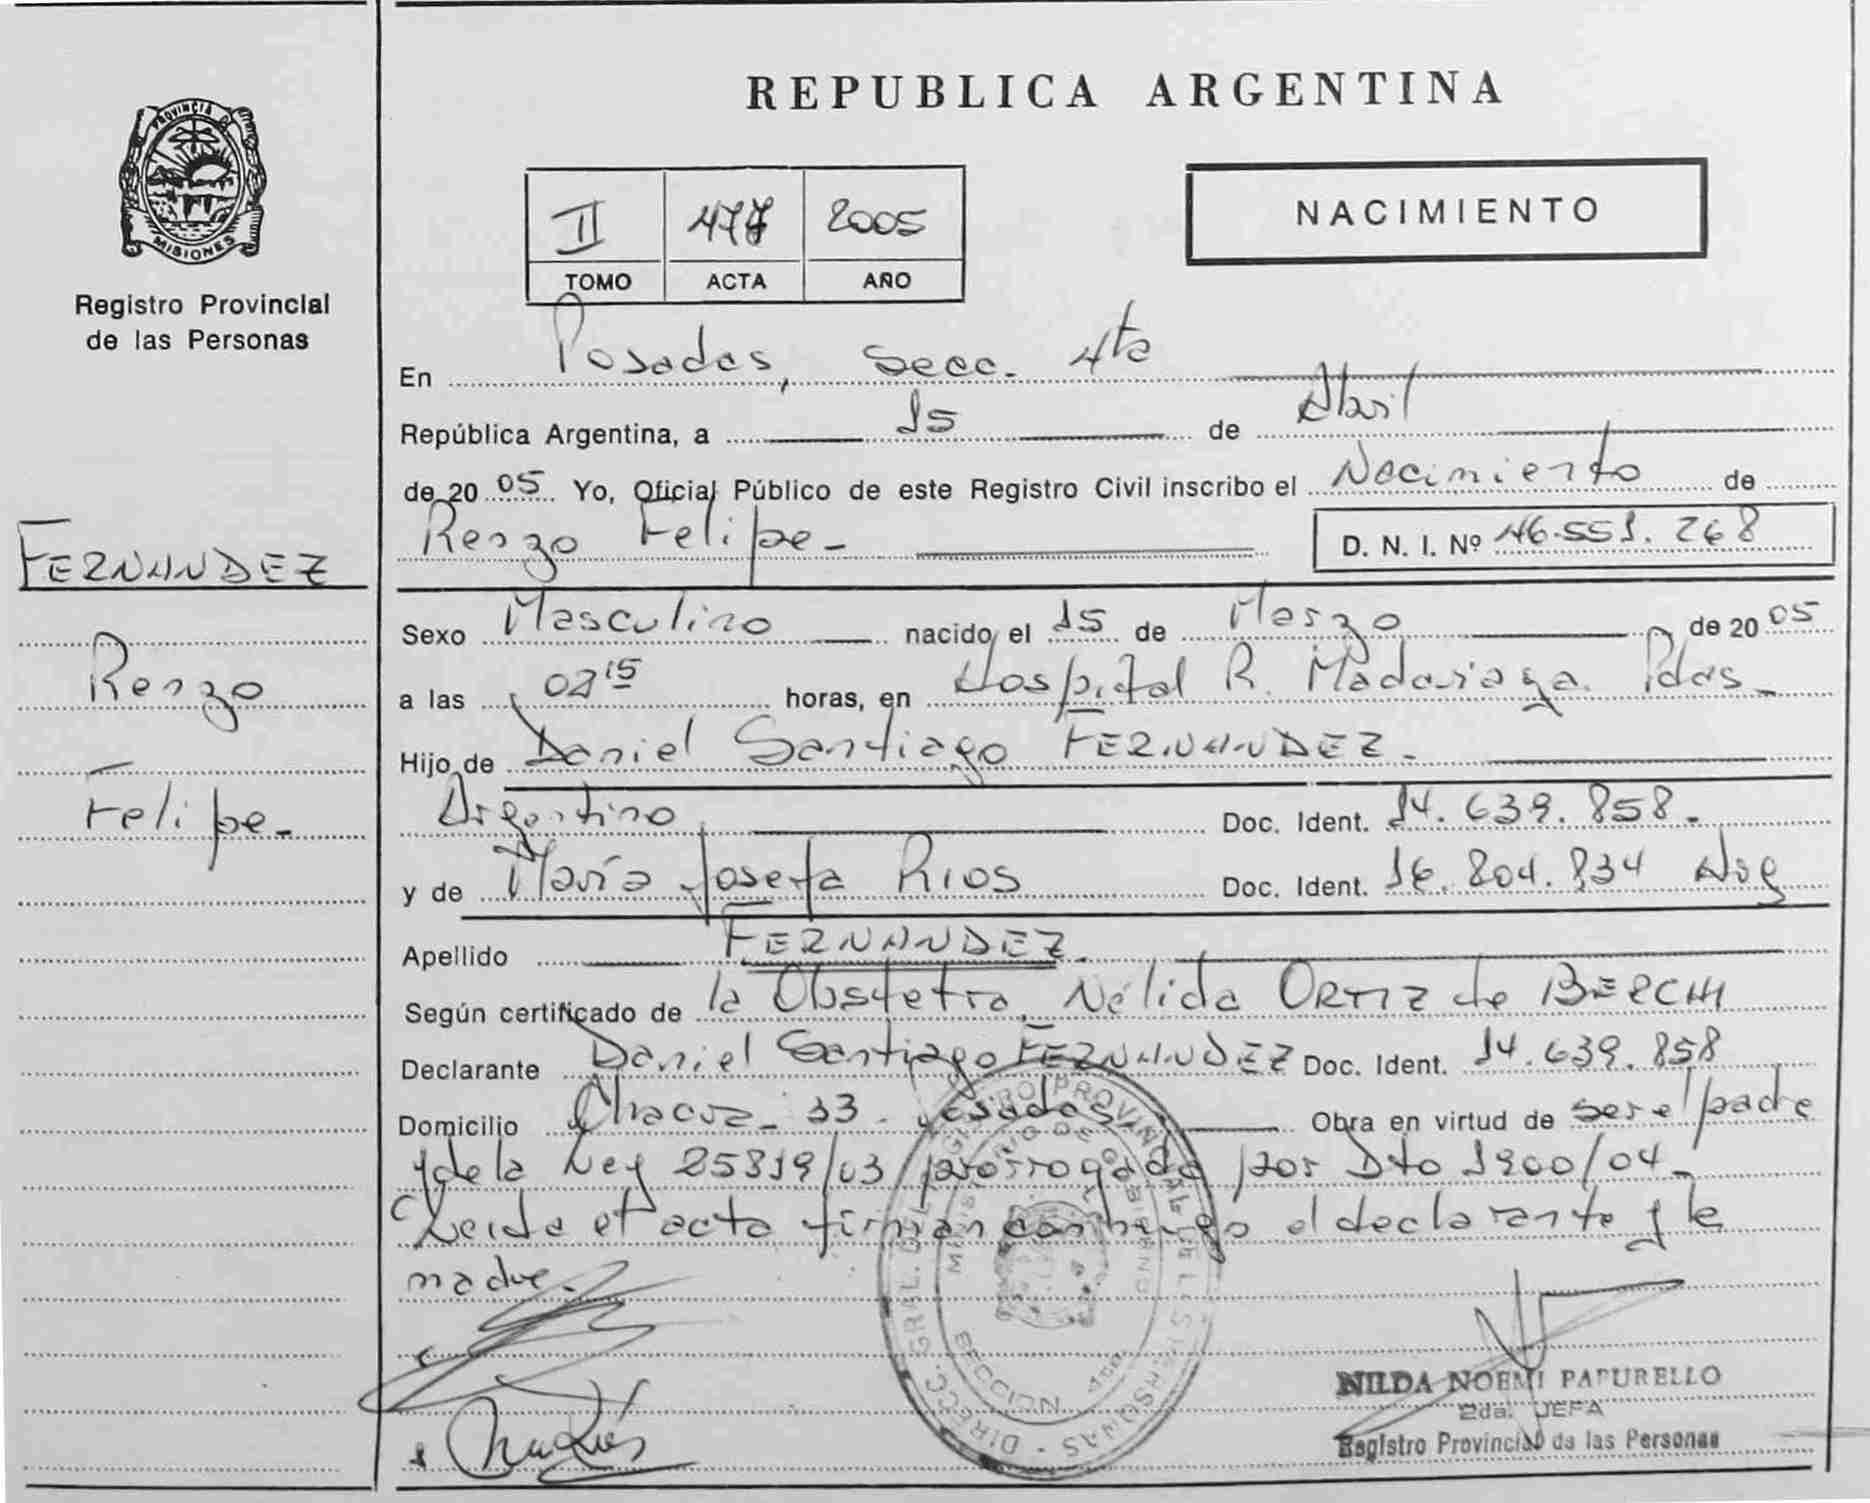 PROVINCIA DE
MISIONES
Registro Provincial
de las Personas
FERNANDEZ
Renzo
Felipe-
REPUBLICA ARGENTINA
II 477 2005
TOMO ACTA AÑO
NACIMIENTO
En Posadas, Secc. 4ta
República Argentina, a 15 de Abril
de 2005 Yo, Oficial Público de este Registro Civil inscribo el Nacimiento de
Renzo Felipe- D. N. I. Nº 46.551.268
Sexo Masculino nacido el 15 de Marzo de 2005
a las 02 15 horas, en Hospital R. Madariaga. Pdas-
Hijo de Daniel Santiago FERNANDEZ-
Argentino Doc. Ident. 14.639.858-
y de María Josefa RIOS Doc. Ident. 16.804.834 Arg
Apellido FERNANDEZ-
Según certificado de la Obstetra, Nélida ORTIZ de BERCHI
Declarante Daniel Santiago FERNANDEZ Doc. Ident. 14.639.858
Domicilio Chacra- 33- Posadas Obra en virtud de ser el padre
y de la Ley 25819/03 prorrogada por Dto 1900/04-
Leida el acta firman conmigo el declarante y la
madre-
DIRECC. GRAL. DEL REGISTRO PROVINCIAL DE LAS PERSONAS
MINISTERIO DE GOBIERNO
SECCION 4ta.
NILDA NOEMI PAPURELLO
2da. JEFA
Registro Provincial de las Personas